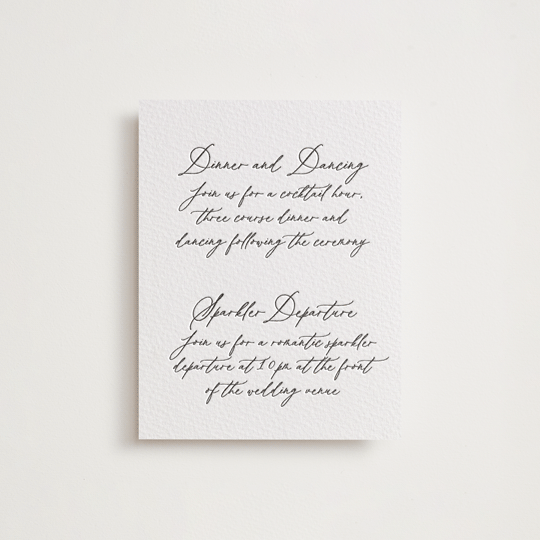 Dinner and Dancing
Join us for a cocktail hour,
three course dinner and
dancing following the ceremony
Sparkler Departure
Join us for a romantic sparkler
departure at 10 pm at the front
of the wedding venue